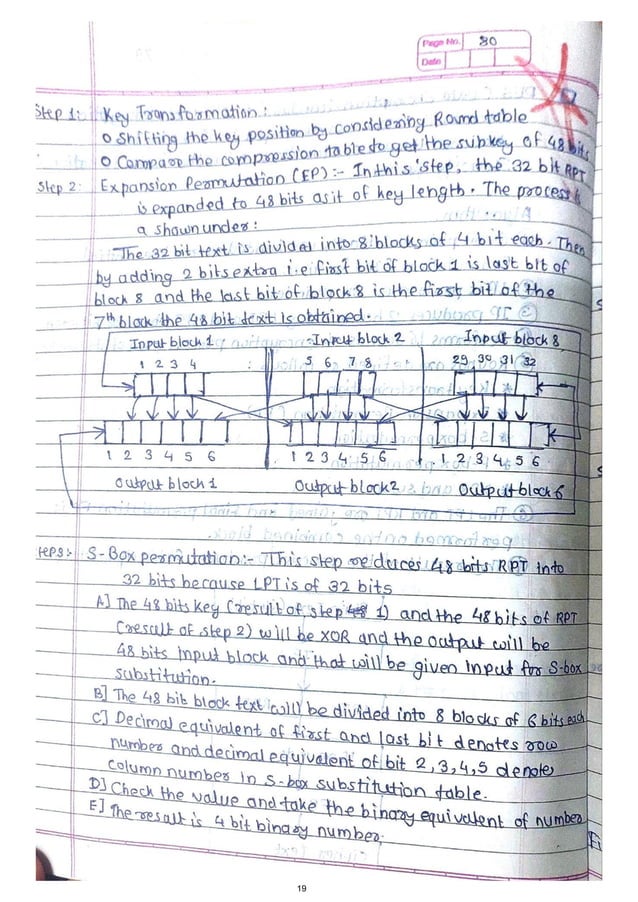 Page No. 80
Date
Step 1: Key Transformation:
o Shifting the key position by considering Round table
o Compare the compression table to get the subkey of 48 bits
Step 2: Expansion Permutation (EP) :- In this step, the 32 bit RPT
is expanded to 48 bits as it of key length. The process is
a shown under:
The 32 bit text is divided into 8 blocks of 4 bit each. Then
by adding 2 bits extra i.e first bit of block 1 is last bit of
block 8 and the last bit of block 8 is the first bit of the
7th block the 48 bit text is obtained.
Input block 1 Input block 2 Input block 8
1 2 3 4 5 6 7 8 29 30 31 32
1 2 3 4 5 6 1 2 3 4 5 6 1 2 3 4 5 6
Output block 1 Output block 2 Output block 6
S-Box permutation:- This step reduces 48 bits RPT into
32 bits because LPT is of 32 bits
A] The 48 bits key (result of step 1) and the 48 bits of RPT
(result of step 2) will be XOR and the output will be
48 bits input block and that will be given input for S-box
substitution.
B] The 48 bit block text will be divided into 8 blocks of 6 bits each
C] Decimal equivalent of first and last bit denotes row
number and decimal equivalent of bit 2,3,4,5 denotes
column number in S-box substitution table.
D] Check the value and take the binary equivalent of number
E] The result is 4 bit binary number.
19